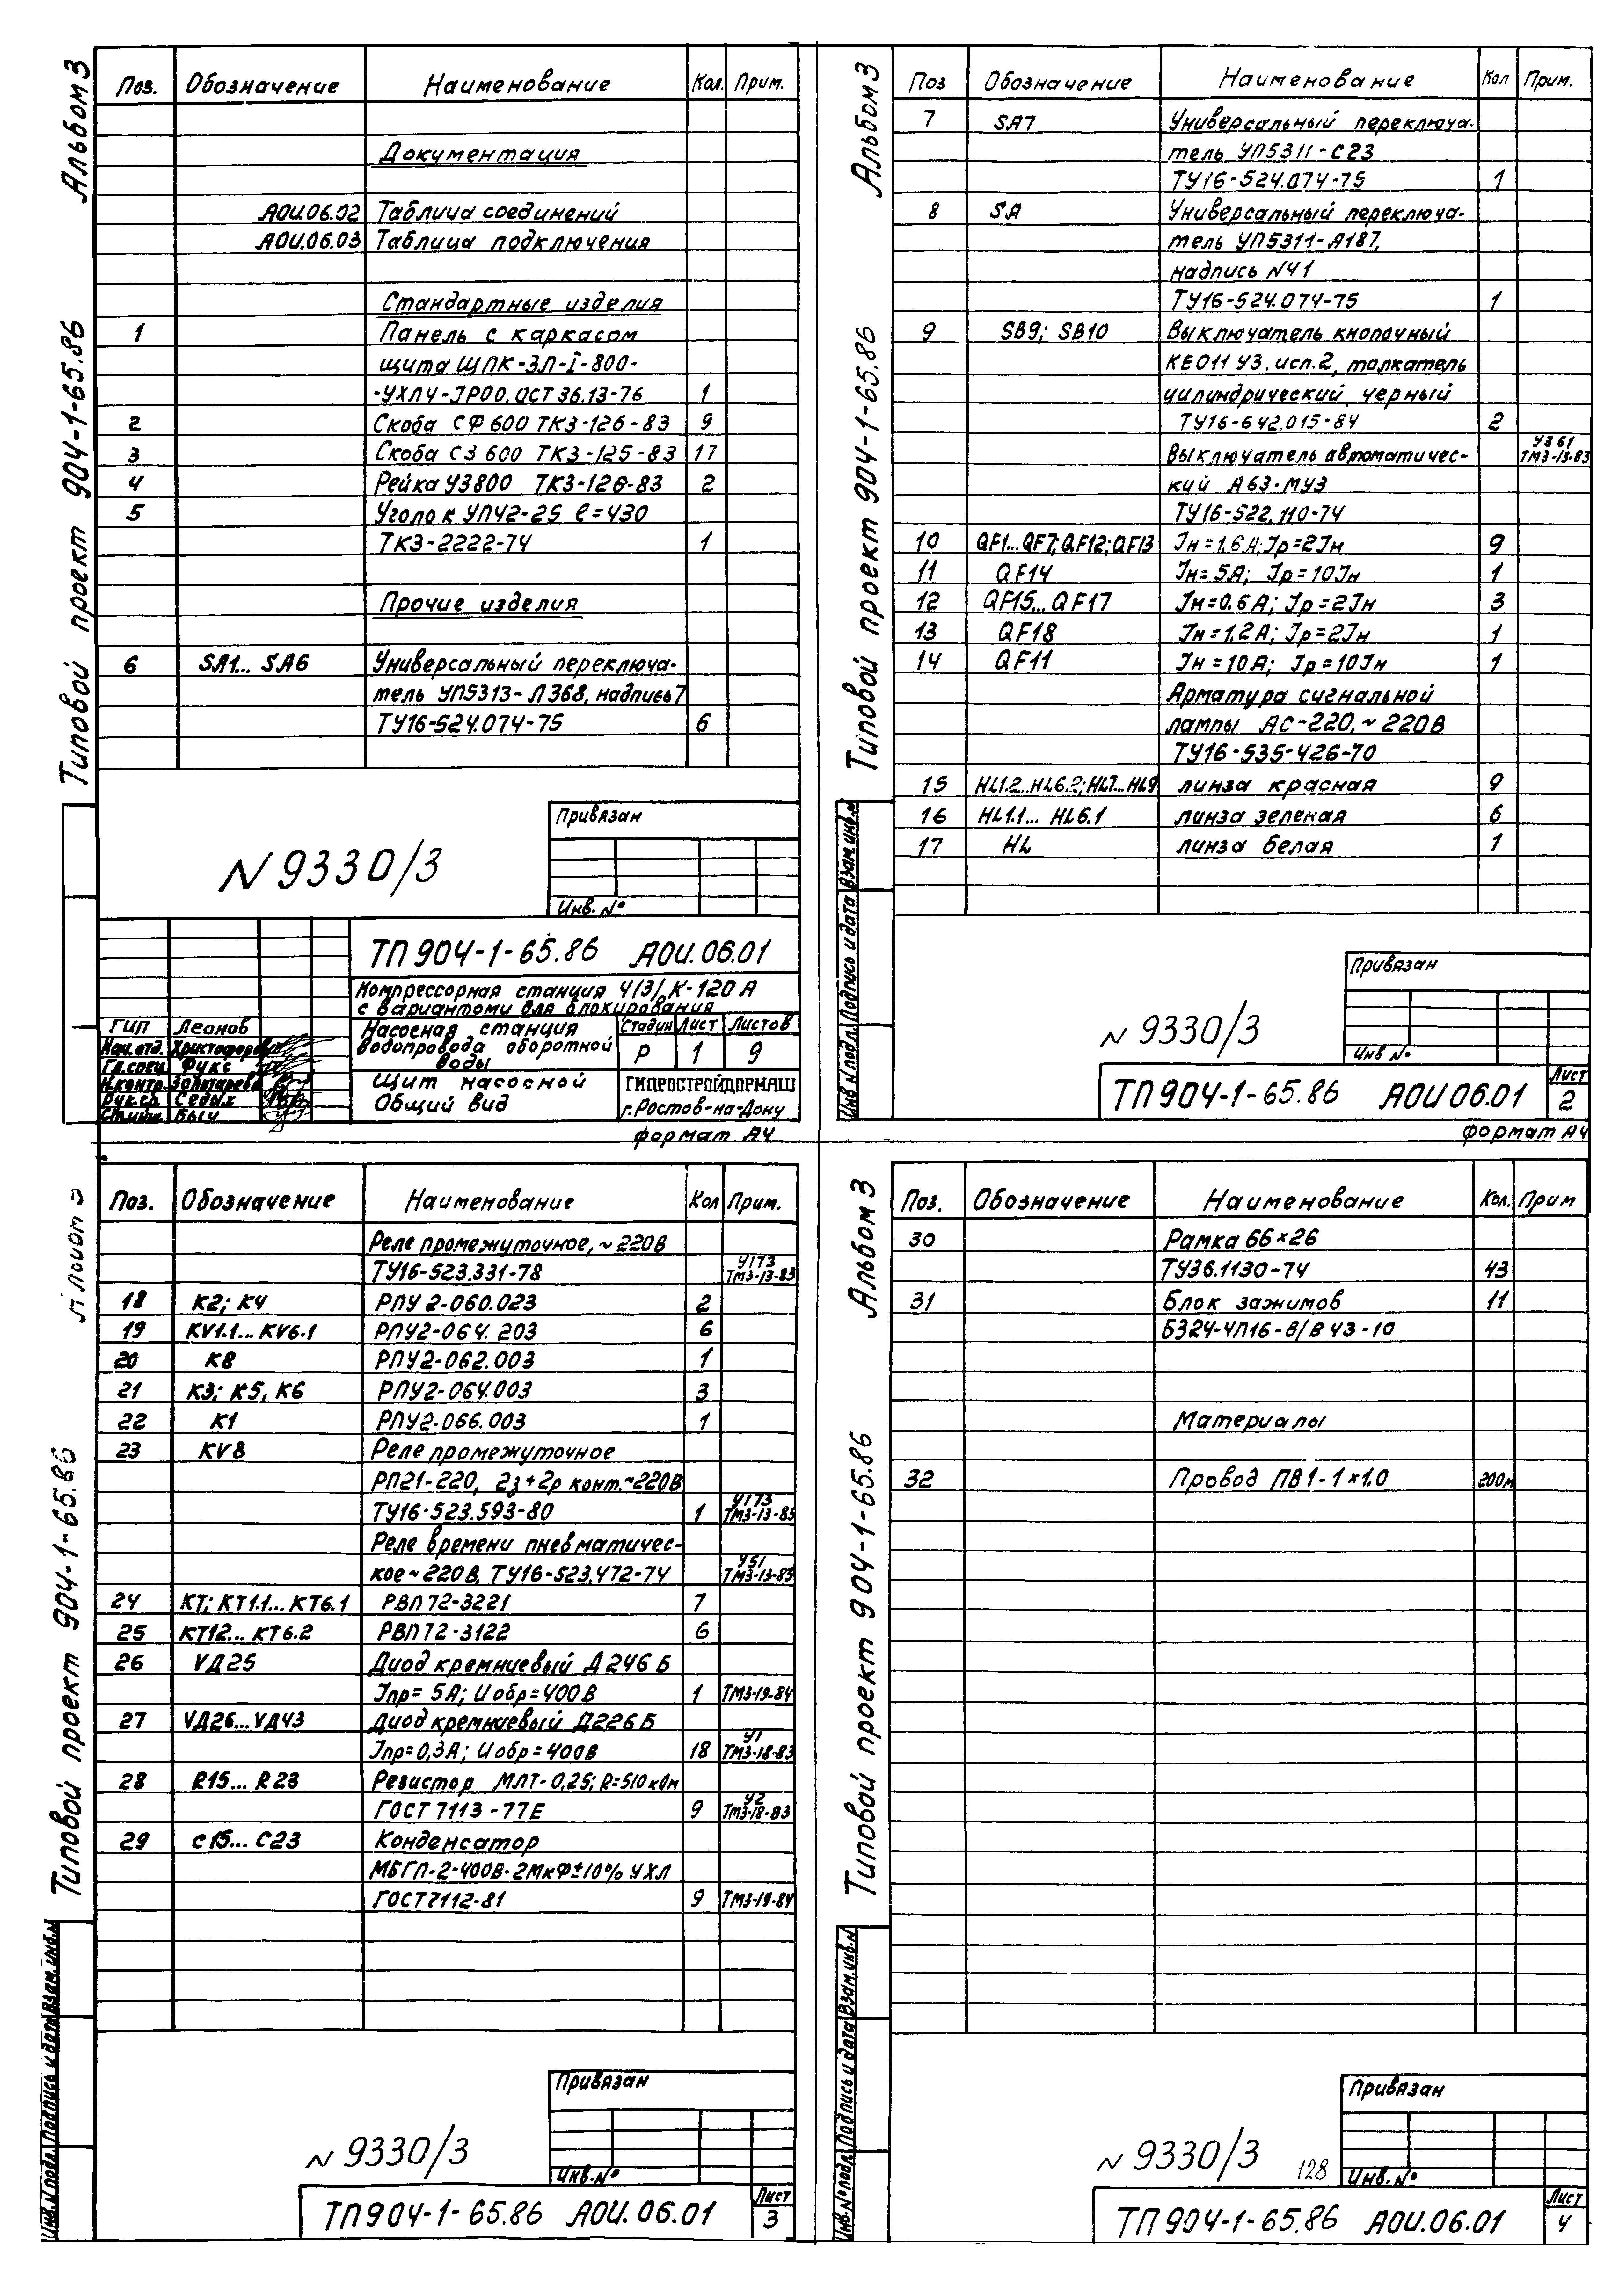 Альбом 3
Типовой проект 904-1-65.86
Поз. Обозначение Наименование Кол. Прим.
Документация
АОИ.06.02 Таблица соединений
АОИ.06.03 Таблица подключения
Стандартные изделия
1 Панель с каркасом
щита ЩПК-ЗЛ-I-800-
-УХЛ4-JР00.ОСТ 36.13-76 1
2 Скоба СФ 600 ТК3-126-83 9
3 Скоба СЗ 600 ТК3-125-83 17
4 Рейка УЗ800 ТК3-126-83 2
5 Уголок УП42-25 ℓ=430
ТК3-2222-74 1
Прочие изделия
6 SA1... SA6 Универсальный переключа-
тель УП5313-Л368, надпись 7
ТУ16-524.074-75 6
Привязан
N 9330/3
Инв. №
ТП 904-1-65.86 АОИ.06.01
Компрессорная станция 4(3) К-120А
с вариантому для блокирования
ГИП Леонов
Нач.отд. Христофоров
Гл.спец Фукс
Н.контр. Золотарева
Рук.гр. Седых
Ст.инж. Быч
Насосная станция
водопровода оборотной
воды
Стадия Лист Листов
Р 1 9
Щит насосной
Общий вид
ГИПРОСТРОЙДОРМАШ
г.Ростов-на-Дону
формат А4
Альбом 3
Типовой проект 904-1-65.86
Поз Обозначение Наименование Кол Прим.
7 SA7 Универсальный переключа-
тель УП5311-С23
ТУ16-524.074-75 1
8 SA Универсальный переключа-
тель УП5311-А187,
надпись N41
ТУ16-524.074-75 1
9 SB9; SB10 Выключатель кнопочный
КЕ011 У3. исп.2, толкатель
цилиндрический, черный
ТУ16-642.015-84 2
Выключатель автоматичес- У361 ТМ3-13-83
кий А63-МУЗ
ТУ16-522.110-74
10 QF1...QF7;QF12;QF13 Jн=1,6А; Jр=2Jн 9
11 QF14 Jн=5А; Jр=10Jн 1
12 QF15...QF17 Jн=0,6А; Jр=2Jн 3
13 QF18 Jн=1,2А; Jр=2Jн 1
14 QF11 Jн=10А; Jр=10Jн 1
Арматура сигнальной
лампы АС-220, ~220В
ТУ16-535-426-70
15 HL1.2...HL6.2;HL7...HL9 линза красная 9
16 HL1.1... HL6.1 линза зеленая 6
17 HL линза белая 1
Взам.инв.N
Подпись и дата
Инв N подл.
Привязан
N 9330/3
Инв №
ТП 904-1-65.86 АОИ 06.01 Лист 2
формат А4
Типовой проект 904-1-65.86
Поз. Обозначение Наименование Кол Прим.
Реле промежуточное, ~220В
ТУ16-523.331-78 У173 ТМ3-13-83
18 К2; К4 РПУ 2-060.023 2
19 KV1.1...KV6.1 РПУ2-064. 203 6
20 К8 РПУ2-062.003 1
21 К3; К5, К6 РПУ2-064.003 3
22 К1 РПУ2-066.003 1
23 KV8 Реле промежуточное
РП21-220, 2з+2р конт.~220В
ТУ16-523.593-80 1 У173 ТМ3-13-83
Реле времени пневматичес-
кое ~220В, ТУ16-523.472-74 У51 ТМ3-13-83
24 КТ; КТ1.1... КТ6.1 РВП72-3221 7
25 КТ12... КТ6.2 РВП72-3122 6
26 VД25 Диод кремниевый Д246Б
Jпр= 5А; Uобр=400В 1 ТМ3-19-84
27 VД26...VД43 Диод кремниевый Д226Б
Jпр=0,3А; Uобр=400В 18 У1 ТМ3-18-83
28 R15... R23 Резистор МЛТ-0,25; R=510кОм
ГОСТ 7113-77Е 9 У2 ТМ3-18-83
29 С15... С23 Конденсатор
МБГП-2-400В-2МкФ±10% УХЛ
ГОСТ7112-81 9 ТМ3-19-84
Взам.инв.N
Подпись и дата
Инв.N подл.
Привязан
N 9330/3
Инв.№
ТП 904-1-65.86 АОИ.06.01 Лист 3
Альбом 3
Типовой проект 904-1-65.86
Поз. Обозначение Наименование Кол. Прим
30 Рамка 66×26
ТУ36.1130-74 43
31 Блок зажимов 11
БЗ24-4П16-В/В У3-10
Материалы
32 Провод ПВ1-1×1.0 200м
Взам.инв.N
Подпись и дата
Инв.№ подл.
Привязан
N 9330/3
128
Инв.№
ТП 904-1-65.86 АОИ.06.01 Лист 4